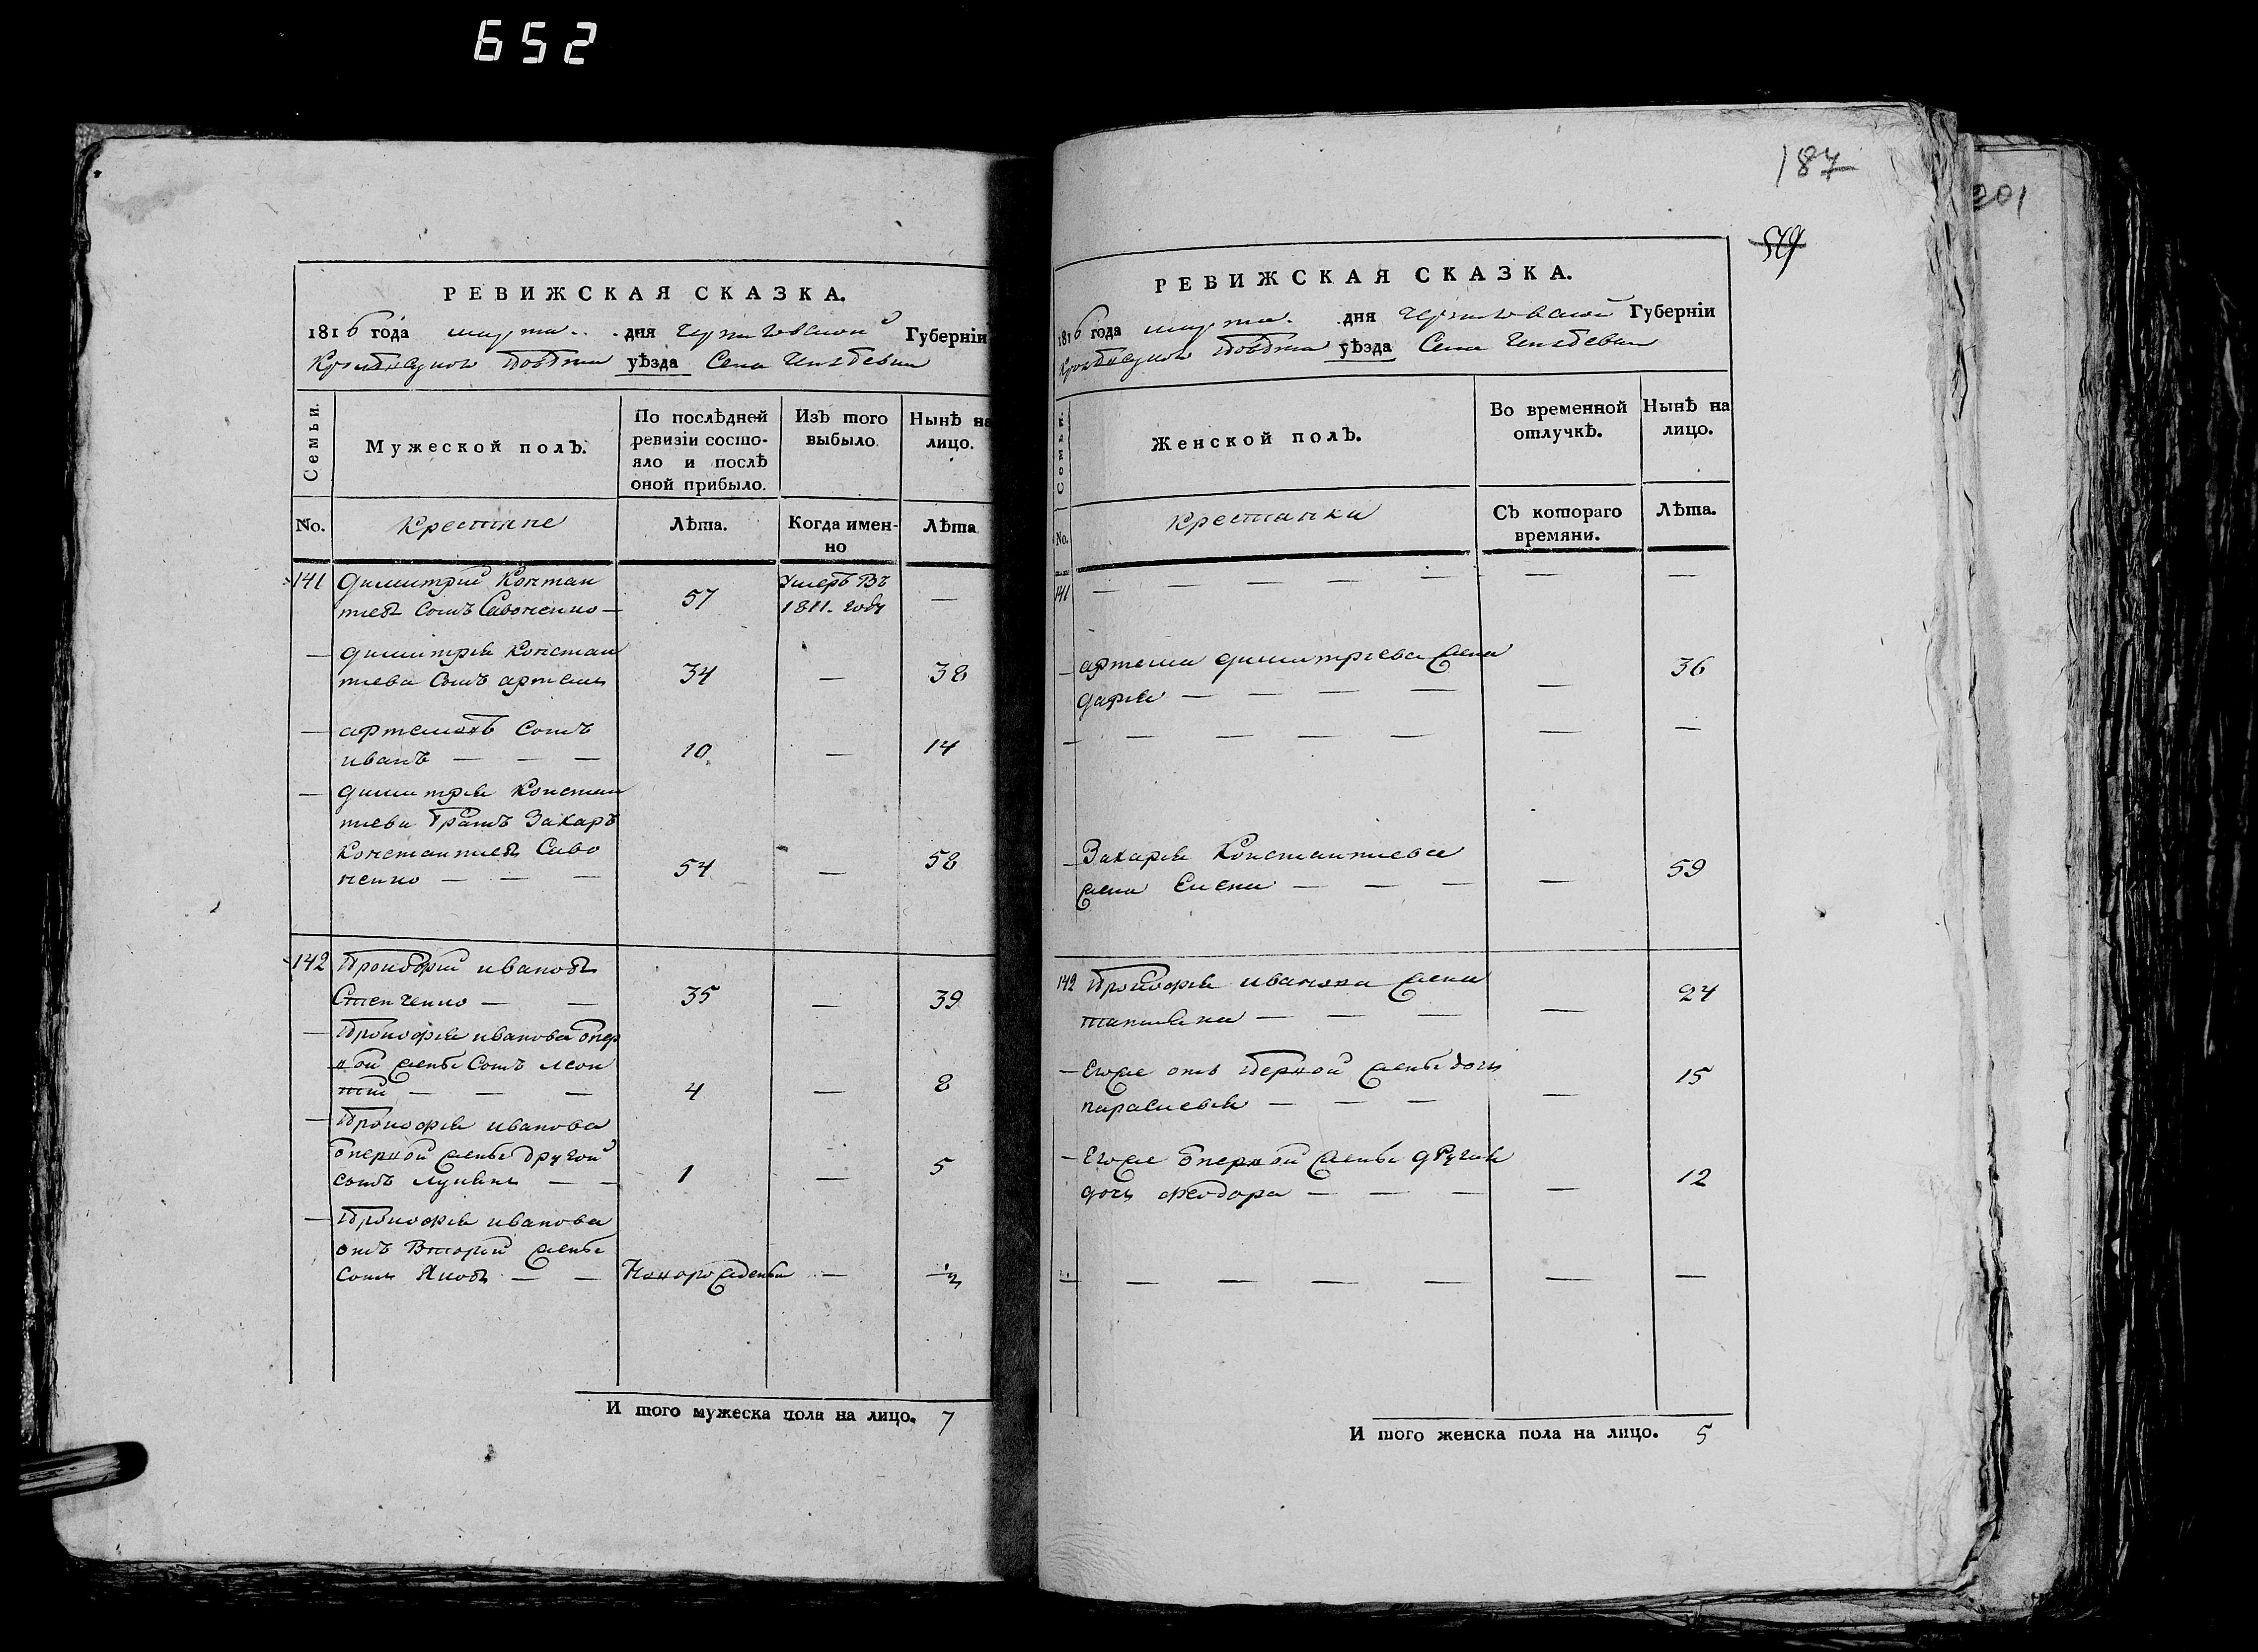 652
187
201
РЕВИЖСКАЯ СКАЗКА.
1816 года марта дня Черниговской Губернїи
повѣта уѣзда Села
Семьи.
Мужеской полъ.
По послѣдней
ревизїи состо-
яло и послѣ
оной прибыло.
Изъ того
выбыло.
Нынѣ на
лицо.
No.
Крестяне
Лѣта.
Когда имен-
но
Лѣта
141 Димитрий Констан
тиевъ сынъ Савоненко —
57
Умеръ Въ
1811. году
—
— Димитрия Констан
тиева сынъ артемъ
34 — 38
— артемовъ сынъ
иванъ — — —
10 — 14
— Димитрия Констан
тиева братъ Захаръ
Константиевъ Саво
ненко — — —
54 — 58
142 Прокофий ивановъ
Стенченко — —
35 — 39
— Прокофия иванова отпер
вой жены сынъ леон
тий — — —
4 — 8
— Прокофия иванова
отпервой жены другой
сынъ лукянъ — —
1 — 5
— Прокофия иванова
отъ Второй жены
сынъ Яковъ — —
Новорожденъ —
И того мужеска пола на лицо. 7
РЕВИЖСКАЯ СКАЗКА.
1816 года марта дня Черниговской Губернїи
повѣта уѣзда Села
Семьи.
Женской полъ.
Во временной
отлучкѣ.
Нынѣ на
лицо.
No.
Крестянки
Съ котораго
времяни.
Лѣта.
141 — — — — — — —
— артема димитриева жена
дария — — — —
— 36
— — — — — — —
— Захария Константиева
жена Елена — — —
— 59
142 Прокофия иванова жена
татияна — — —
— 24
— Егоже отъ первой жены дочь
параскевия — — —
— 15
— Егоже отпервой жены другая
дочь феодора — — —
— 12
— — — — — — —
И того женска пола на лицо. 5